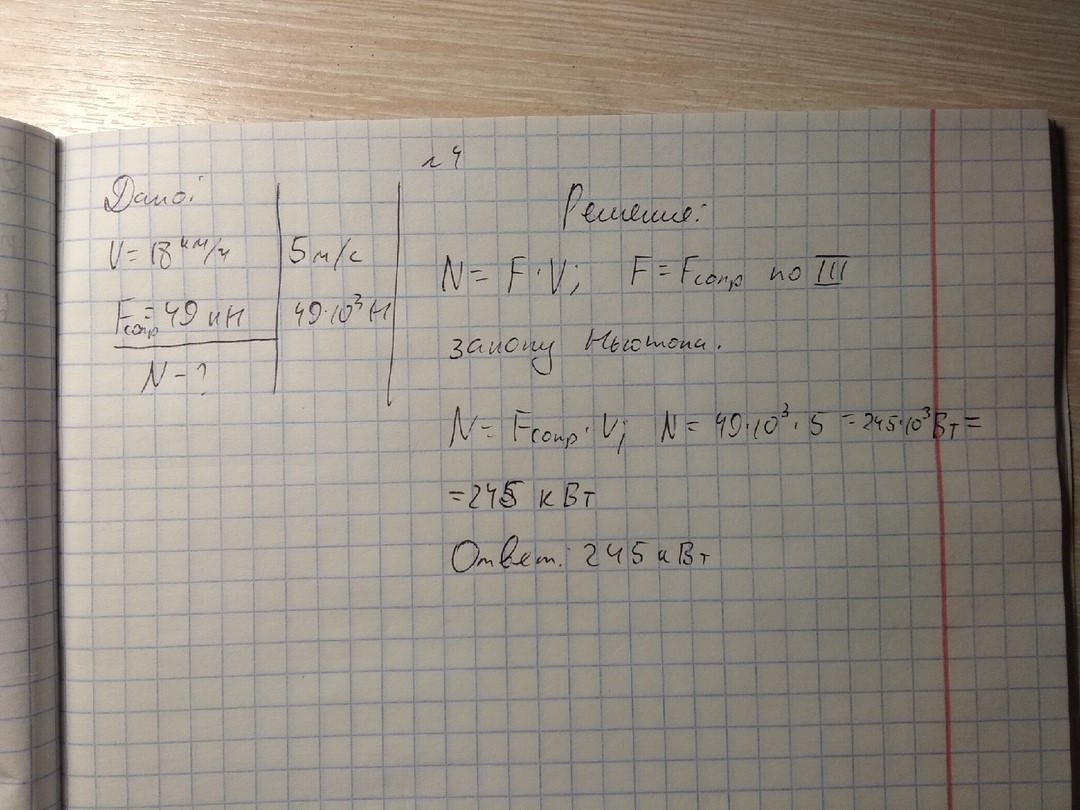 № 4
Дано:
V = 18 км/ч 5 м/с
Fсопр = 49 кН 49·10³ Н
N - ?
Решение:
N = F·V; F = Fсопр по III
закону Ньютона.
N = Fсопр·V; N = 49·10³·5 = 245·10³ Вт =
= 245 кВт
Ответ: 245 кВт